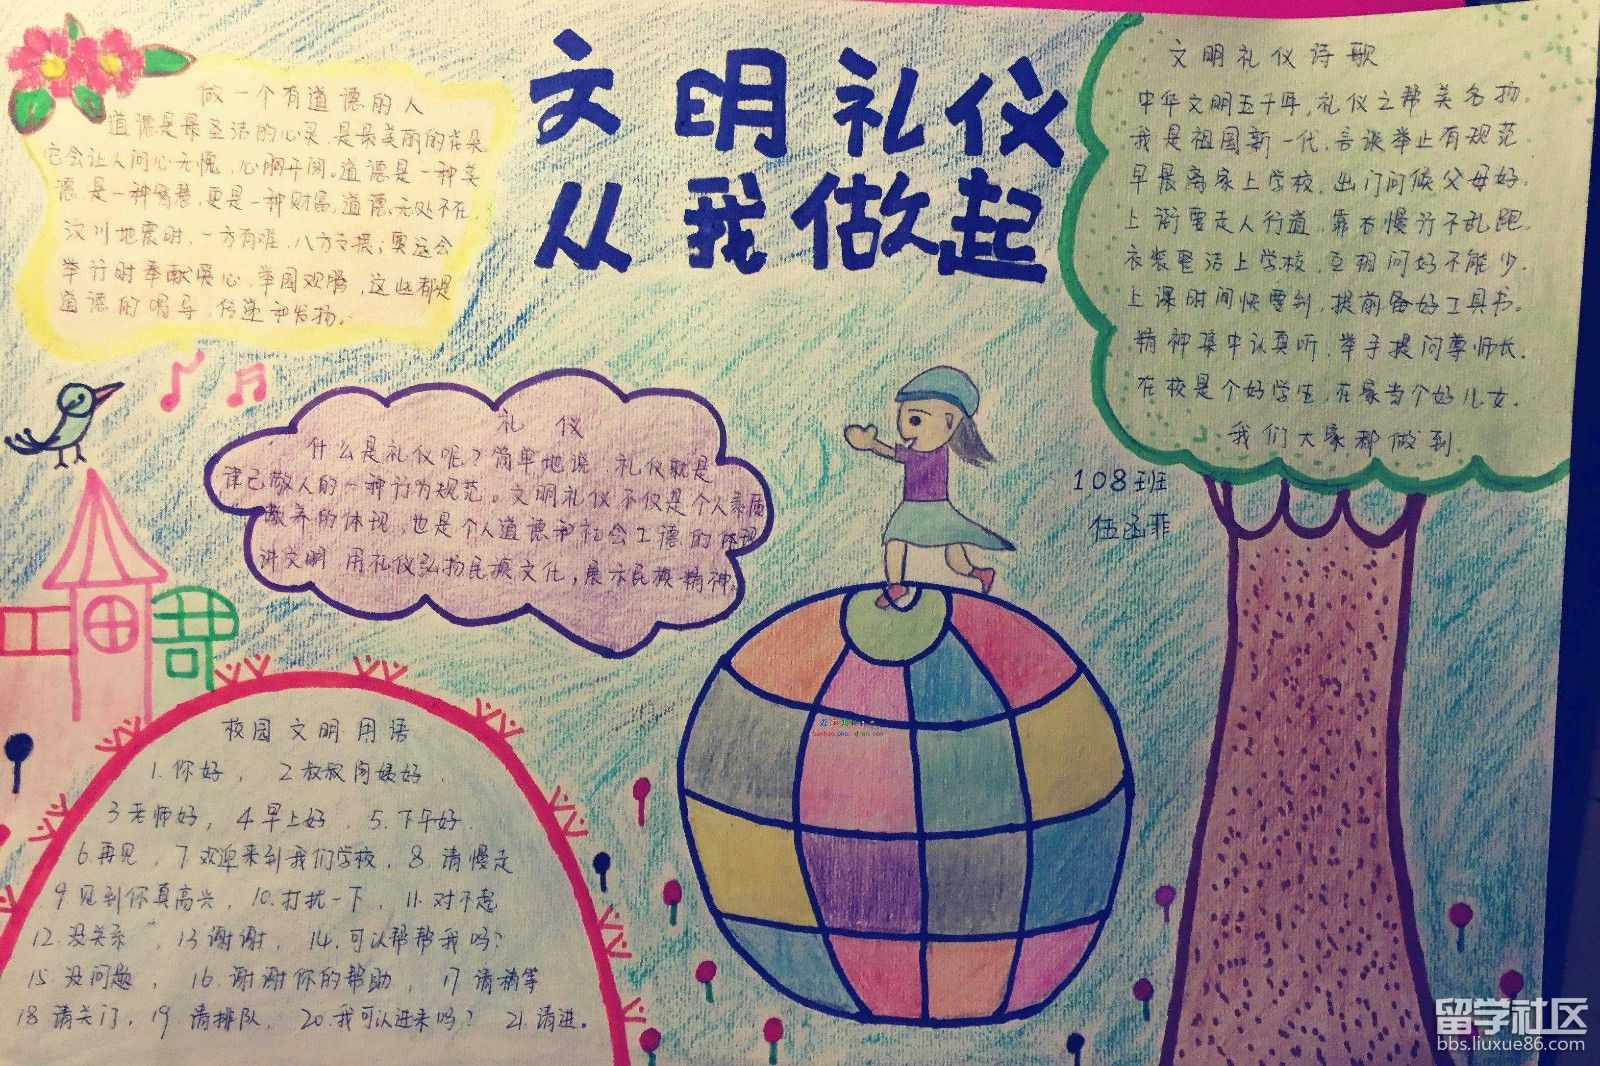 文明礼仪
从我做起
做一个有道德的人
道德是最圣洁的心灵,是最美丽的花朵,
它会让人问心无愧,心胸开阔。道德是一种美
德,是一种智慧,更是一种财富,道德,无处不在,
汶川地震时,一方有难,八方支援;奥运会
举行时奉献爱心,举国欢腾,这些都是
道德的倡导,传递和发扬。
文明礼仪诗歌
中华文明五千年,礼仪之帮美名扬。
我是祖国新一代,言谈举止有规范.
早晨离家上学校,出门问候父母好.
上街要走人行道,靠右慢行不乱跑.
衣装整洁上学校,互相问好不能少.
上课时间快要到,提前备好工具书.
精神集中认真听,举手提问尊师长.
在校是个好学生,在家当个好儿女.
我们大家都做到
108班
伍函菲
礼仪
什么是礼仪呢?简单地说,礼仪就是
律己敬人的一种行为规范。文明礼仪不仅是个人素质
教养的体现,也是个人道德和社会工德的体现
讲文明 用礼仪弘扬民族文化,展示民族精神.
校园文明用语
1.你好, 2.叔叔阿姨好.
3老师好, 4.早上好. 5.下午好.
6.再见, 7.欢迎来到我们学校, 8.请慢走
9见到你真高兴, 10.打扰一下, 11.对不起
12.没关系, 13谢谢, 14.可以帮帮我吗?
15.没问题, 16.谢谢你的帮助, 17请稍等
18请关门, 19.请排队, 20.我可以进来吗? 21.请进。
留学社区
bbs.liuxue86.com